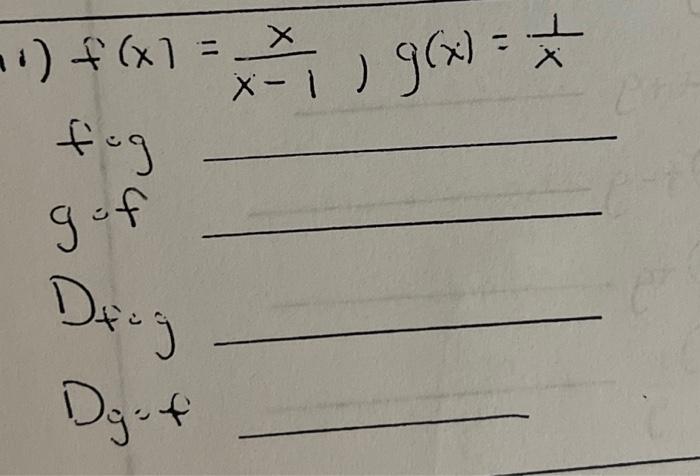 11) f(x) = x/(x-1), g(x) = 1/x
f∘g
g∘f
D f∘g
D g∘f